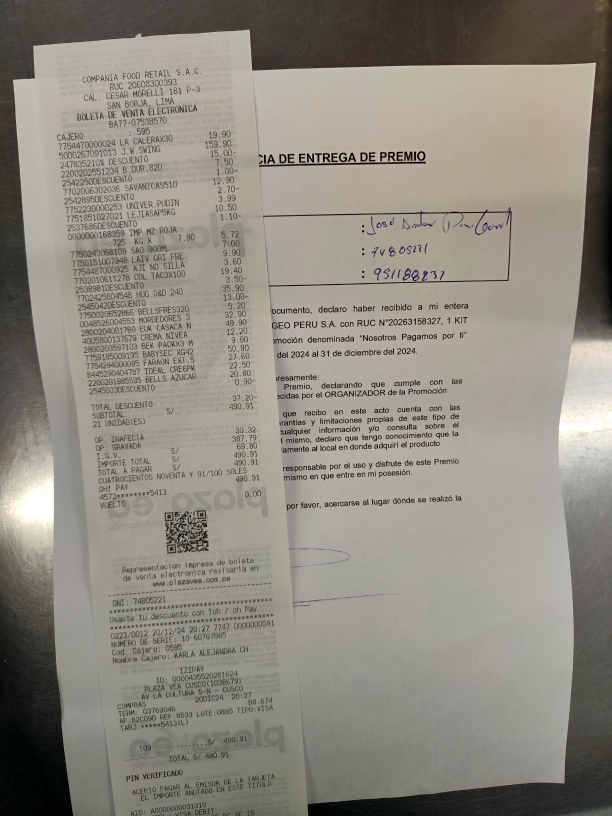 COMPANIA FOOD RETAIL S.A.C.
RUC 20608300393
CAL. CESAR MORELLI 181 P-3
SAN BORJA, LIMA
BOLETA DE VENTA ELECTRONICA
BA77-07538570
CAJERO : 595
7754470000024 LA CALERAX30 19.90
5000267091013 J.W.SWING 159.90
247835210% DESCUENTO 15.00-
2200202551234 B.DUR.B20 7.50
25422500DESCUENTO 1.00-
7702006302036 SAVANTCAS510 12.90
25428950DESCUENTO 2.70-
7752230000253 UNIVER.PUDIN 3.99
7751851027021 LEJIASAPSKG 10.50
25376860DESCUENTO 1.10-
0000000168359 IMP MZ ROJA
.725 KG X 7.90 5.72
7750243068109 SAO 900ML 7.00
7750151007948 LAIV GRI.FRE 9.90
7754487000925 AJI NO SILLA 3.60
7702010611278 COL TAC3X100 19.40
25389810DESCUENTO 3.50-
7702425804548 HUG 0&D 240 35.90
25450420DESCUENTO 13.00-
7750020652866 BELLSFRES320 5.20
0048526004553 MORDEDORES 3 32.90
2800204001760 EUK CASACA N 49.90
4005800137679 CREMA NIVEA 12.20
2800203597103 BEK PACKX3 M 9.90
7759185009195 BABYSEC XG42 50.90
7754294000095 FARAON EXT.5 27.60
8445290404787 IDEAL CRE6PM 22.50
2200201985535 BELLS AZUCAR 20.80
25450330DESCUENTO 0.90-
TOTAL DESCUENTO 37.20-
SUBTOTAL S/ 490.91
21 UNIDAD(ES)
OP. INAFECTA 33.32
OP. GRAVADA S/ 387.79
I.G.V. S/ 69.80
IMPORTE TOTAL S/ 490.91
TOTAL A PAGAR S/ 490.91
CUATROCIENTOS NOVENTA Y 91/100 SOLES
OH! PAY 490.91
4573********5413
VUELTO 0.00
Representacion impresa de boleta
de venta electronica revisarla en
www.plazavea.com.pe
DNI: 74805221
Usaste tu descuento con Toh / oh Pay
0223/0012 20/12/24 20:27 7747 0000000591
NUMERO DE SERIE: 15-60767565
Cod. Cajero: 0595
Nombre Cajero: KARLA ALEJANDRA CH
IZIPAY
ID: 0000435520281624
PLAZA VEA CUSCO(1036679)
AV LA CULTURA S-N - CUSCO
COMPRAS 20DIC24 20:27
TERM: 03769046 B0.67d
AP:82C090 REF 8533 LOTE:0895 TIPO:VISA
TARJ:*****5413(L)
TOTAL S/ 490.91
PIN VERIFICADO
ACEPTO PAGAR AL EMISOR DE LA TARJETA
EL IMPORTE ANOTADO EN ESTE TITULO
AID: A0000000031010
VISA DEBIT
CIA DE ENTREGA DE PREMIO
: José
: 74805221
: 951188231
documento, declaro haber recibido a mi entera
GEO PERU S.A. con RUC N°20263158327, 1 KIT
moción denominada “Nosotros Pagamos por ti”
del 2024 al 31 de diciembre del 2024.
presamente:
Premio, declarando que cumple con las
ecidas por el ORGANIZADOR de la Promoción
que recibo en este acto cuenta con las
rantías y limitaciones propias de este tipo de
cualquier información y/o consulta sobre el
l mismo, declaro que tengo conocimiento que la
tamente al local en donde adquirí el producto
responsable por el uso y disfrute de este Premio
mismo en que entre en mi posesión.
por favor, acercarse al lugar dónde se realizó la